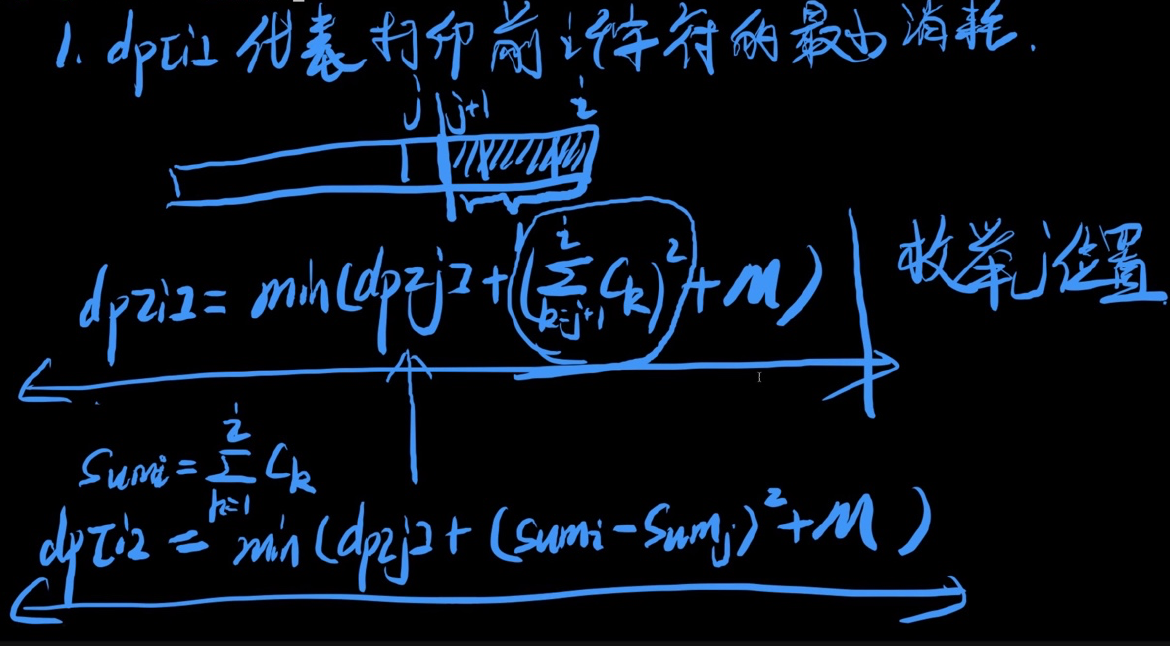 1. dp[i] 代表打印前i个字符的最小消耗.
j j+1 i
dp[i] = min(dp[j] + (∑_{k=j+1}^{i} C_k)^2 + M) 枚举j位置
sum_i = ∑_{k=1}^{i} C_k
dp[i] = min(dp[j] + (sum_i - sum_j)^2 + M)